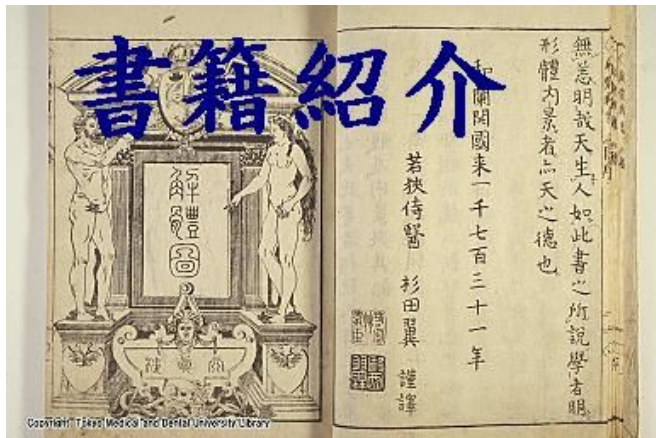 書籍紹介
無恙明哉天生人如此書之所説學者明
形體内景者亦天之德也
和蘭開國来一千七百三十一年
若狹侍醫 杉田翼 謹譯
解體圖
Copyright: Tokyo Medical and Dental University Library